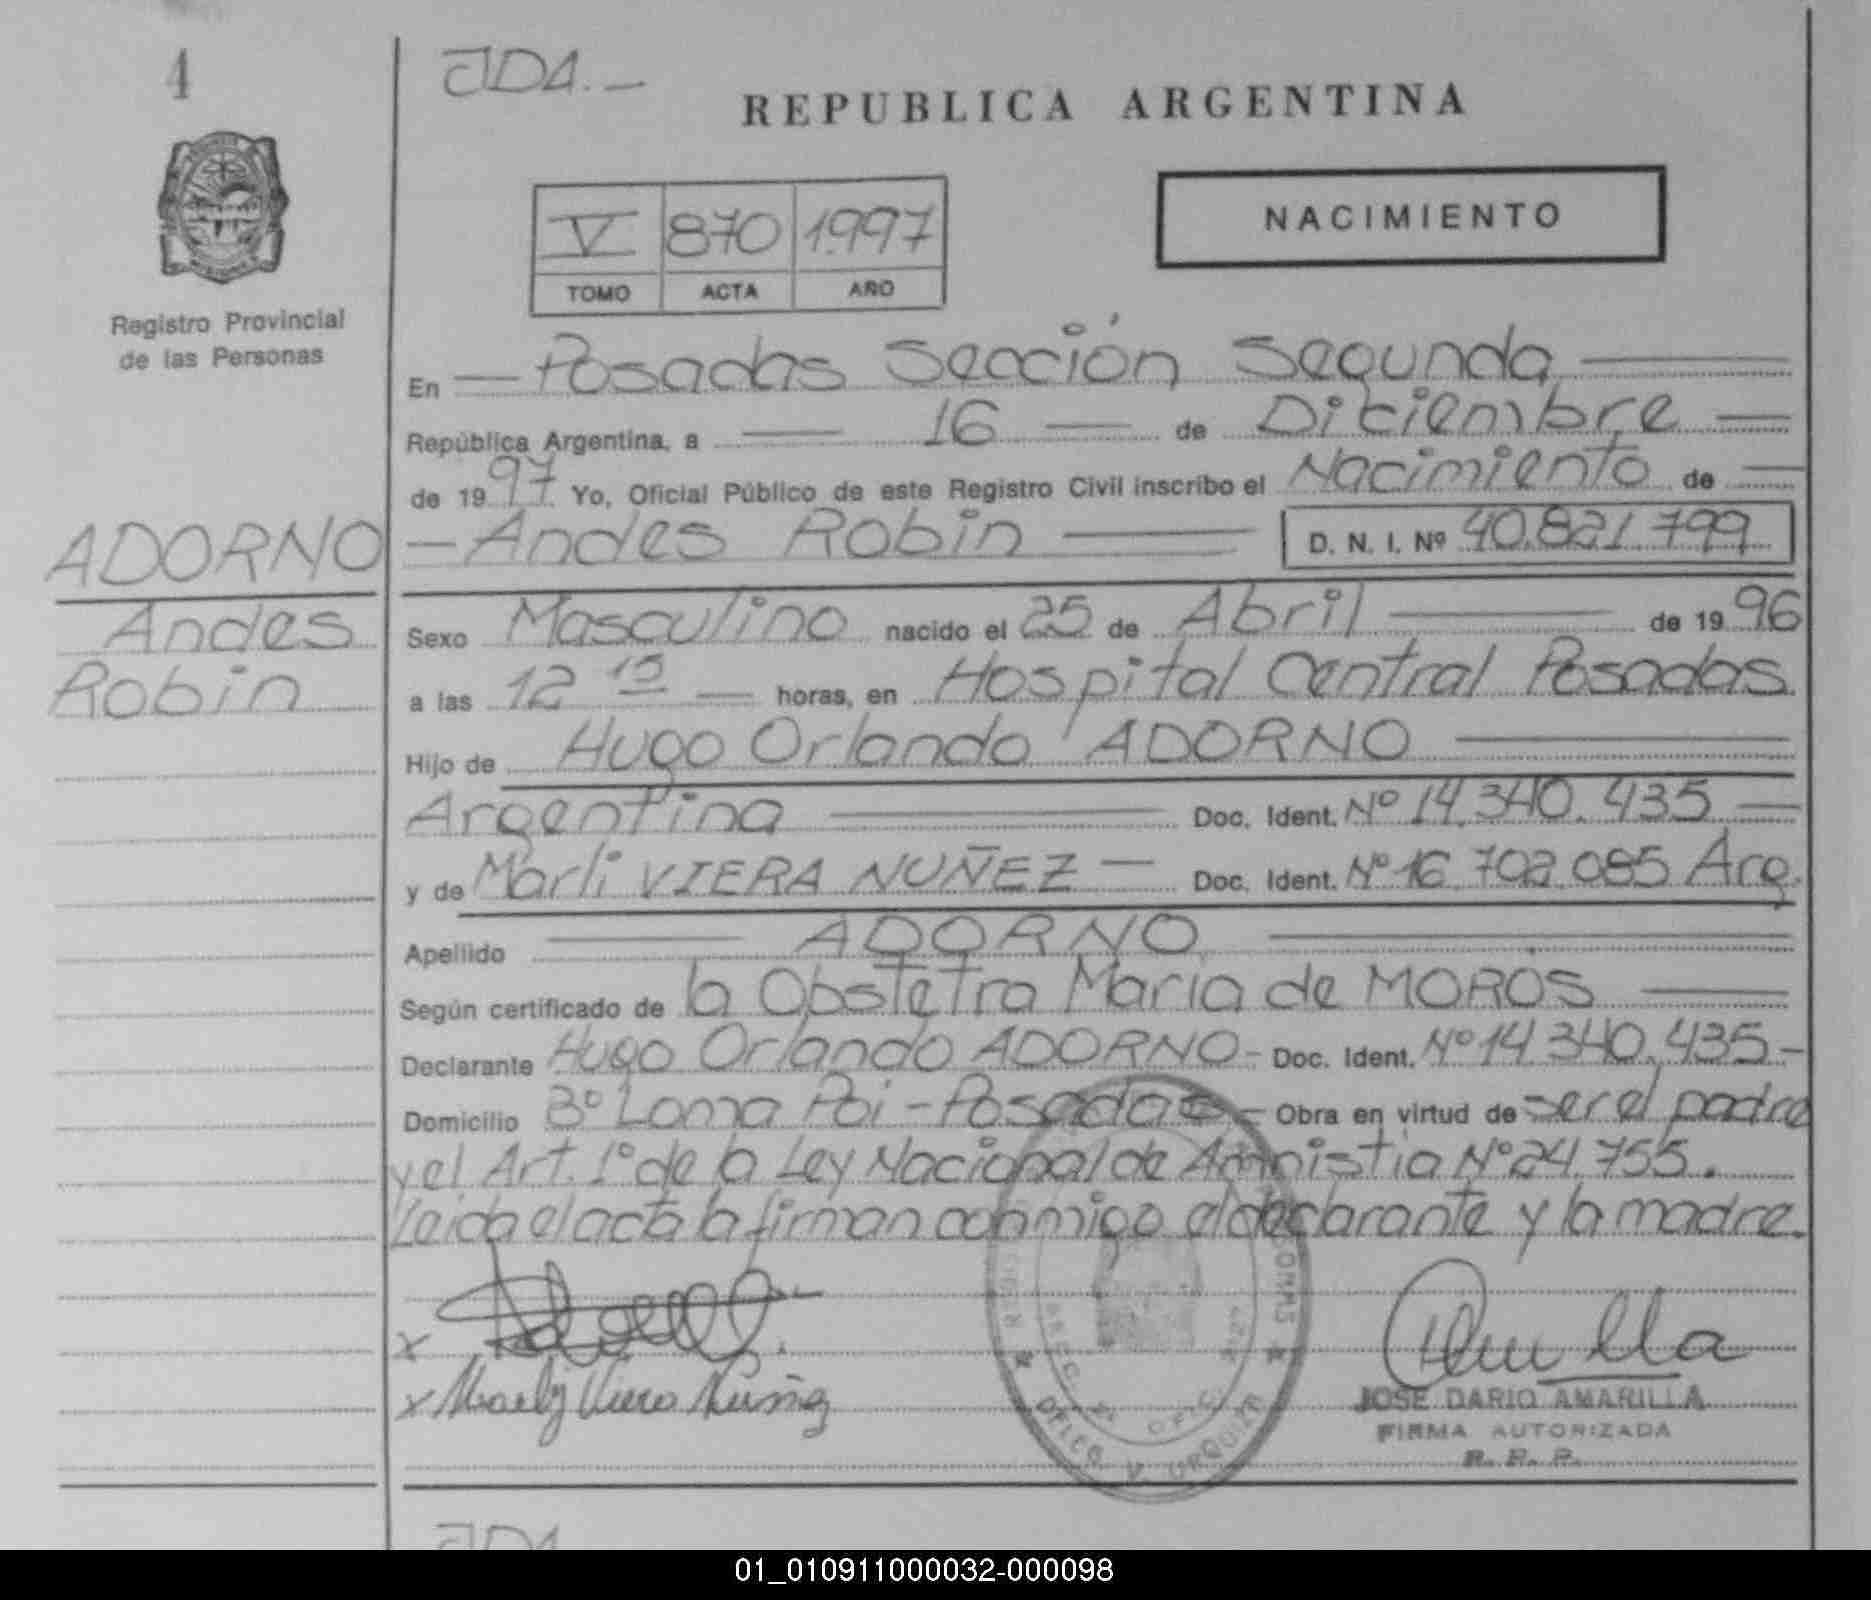 4
JDA.-
REPUBLICA ARGENTINA
V 870 1997
TOMO ACTA AÑO
NACIMIENTO
Registro Provincial
de las Personas
En — Posadas Sección Segunda —
República Argentina, a — 16 — de Diciembre —
de 1997 Yo, Oficial Público de este Registro Civil inscribo el Nacimiento de —
ADORNO
Andes
Robin
— Andes Robin — D. N. I. Nº 40.821.799
Sexo Masculino nacido el 25 de Abril — de 1996
a las 12 15 — horas, en Hospital Central Posadas
Hijo de Hugo Orlando ADORNO —
Argentina — Doc. Ident. Nº 14.340.435 —
y de Marli VIERA NUÑEZ — Doc. Ident. Nº 16.702.085 Arg.
Apellido — ADORNO —
Según certificado de la Obstetra Maria de MOROS —
Declarante Hugo Orlando ADORNO - Doc. Ident. Nº 14.340.435 -
Domicilio Bº Loma Poi - Posadas - Obra en virtud de ser el padre
y el Art. 1º de la Ley Nacional de Amnistia Nº 24.755.
Leida el acta la firman conmigo el declarante y la madre.
x
x Viera Nuñez
OFIC
URQUIZA
JOSE DARIO AMARILLA
FIRMA AUTORIZADA
R. P. P.
JDA
01_010911000032-000098